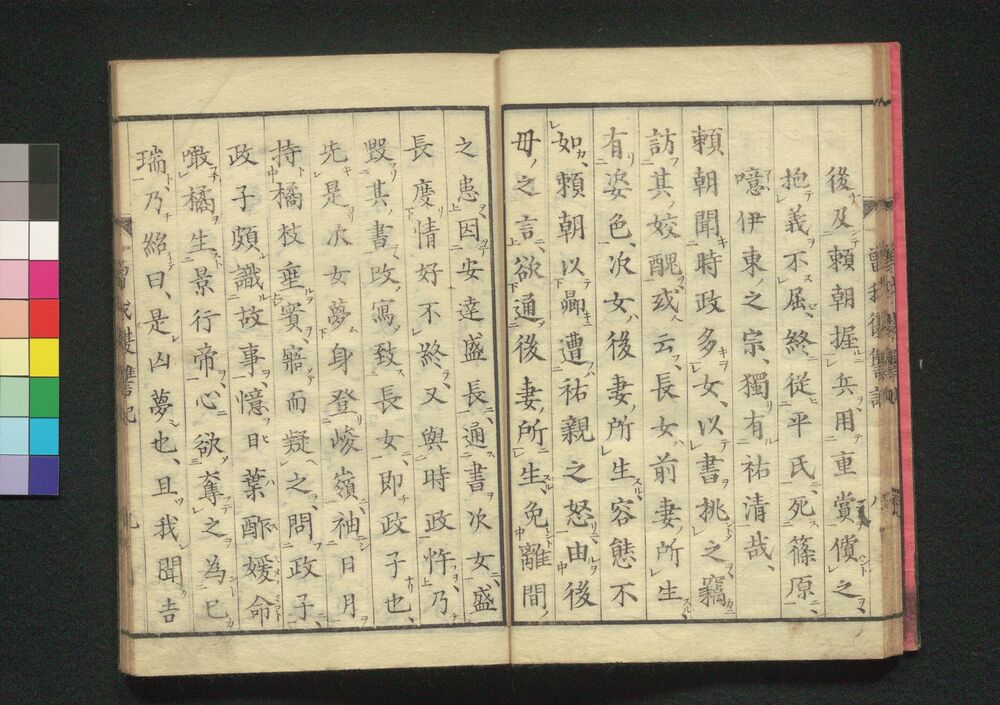 後及賴朝握兵用重賞償之
抱義不屈、終從平氏、死篠原
噫伊東之宗、獨有祐清哉、
賴朝聞時政多女、以書挑之、竊
訪其姣醜、或云、長女前妻所生
有姿色、次女後妻所生、容態不
如、賴朝以卿遭祐親之怒、由後
母之言、欲通後妻所生、免離間
之患、因安達盛長、通書次女、盛
長度情好不終、又與時政忤、乃
毀其書、改寫致長女、即政子也、
先是次女夢身登峻嶺、袖日月
持橘枝垂實、寤而疑之、問政子、
政子頗識故事、憶曰、葉酢媛命
噉橘生景行帝、心欲奪之為已
瑞、乃紿曰、是凶夢也、且我聞吉
曾我復讐記
八
九